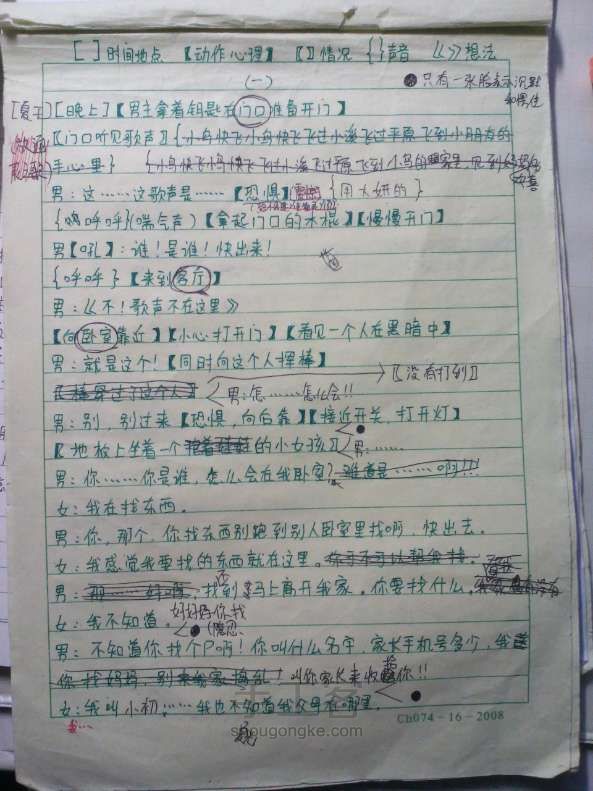 [ ]时间地点 【动作心理】 〖〗情况 { }声音 《》想法
(一)
●只有一张脸表示沉默和愣住
[夏天][晚上]【男主拿着钥匙在门口准备开门】
〖门口听见歌声〗{小鸟快飞小鸟快飞飞过小溪飞过平原飞到小朋友的
手心里} {小鸟快飞小鸟快飞飞过小溪飞过平原飞到
男：这……这歌声是……【恐惧】
{呜呼呼}(喘气声)【拿起门口的木棍】【慢慢开门】
男【吼】：谁！是谁！快出来！
{呼呼}【来到客厅】
男：《不！歌声不在这里》
【向卧室靠近】【小心打开门】【看见一个人在黑暗中】
男：就是这个！【同时向这个人挥棒】
〖棒穿过了这个人〗 〖没有打到〗
男：怎……怎么会!!
男：别，别过来【恐惧，向后靠】【接近开关，打开灯】
〖地板上坐着一个的小女孩〗 男：……
男：你……你是谁，怎么会在我卧室？难道是……啊!!!
女：我在找东西。
男：你，那个，你找东西别跑到别人卧室里找啊，快出去。
女：我感觉我要找的东西就在这里。
男：找到马上离开我家。你要找什么。
女：我不知道。
男：不知道你找个P啊！你叫什么名字，家长手机号多少，我
你找妈妈，别来给家捣乱！叫你家长来收你!!
女：我叫小初……我也不知道我父母在哪里。
手工客
shougongke.com
Ch074-16-2008